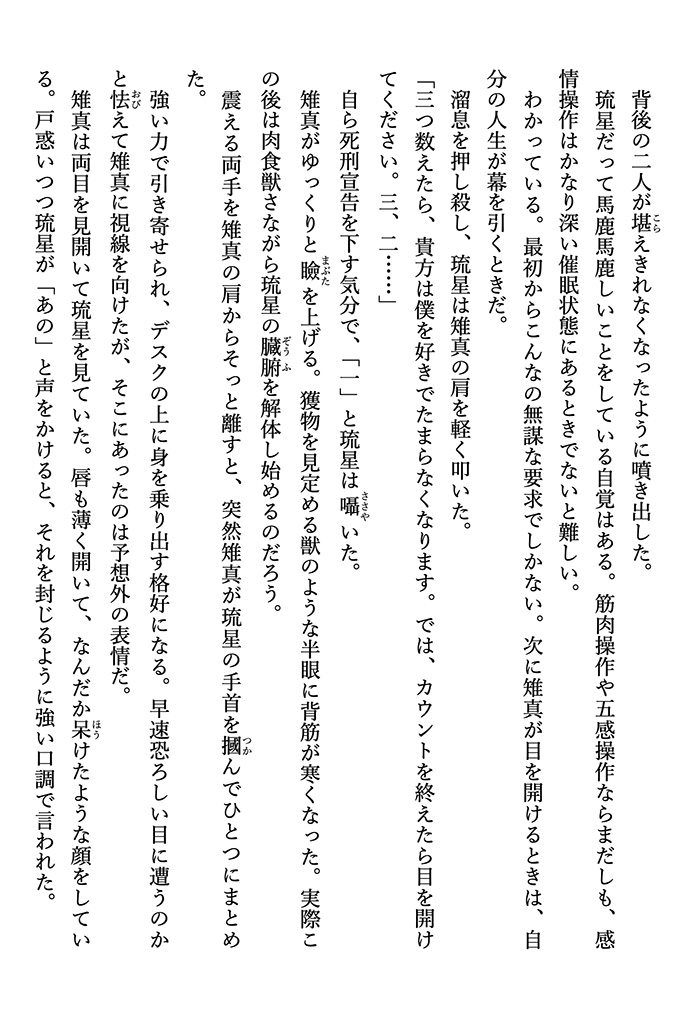 背後の二人が堪えきれなくなったように噴き出した。
琉星だって馬鹿馬鹿しいことをしている自覚はある。筋肉操作や五感操作ならまだしも、感
情操作はかなり深い催眠状態にあるときでないと難しい。
わかっている。最初からこんなの無謀な要求でしかない。次に雉真が目を開けるときは、自
分の人生が幕を引くときだ。
溜息を押し殺し、琉星は雉真の肩を軽く叩いた。
「三つ数えたら、貴方は僕を好きでたまらなくなります。では、カウントを終えたら目を開け
てください。三、二……」
自ら死刑宣告を下す気分で、「一」と琉星は囁いた。
雉真がゆっくりと瞼を上げる。獲物を見定める獣のような半眼に背筋が寒くなった。実際こ
の後は肉食獣さながら琉星の臓腑を解体し始めるのだろう。
震える両手を雉真の肩からそっと離すと、突然雉真が琉星の手首を摑んでひとつにまとめ
た。
強い力で引き寄せられ、デスクの上に身を乗り出す格好になる。早速恐ろしい目に遭うのか
と怯えて雉真に視線を向けたが、そこにあったのは予想外の表情だ。
雉真は両目を見開いて琉星を見ていた。唇も薄く開いて、なんだか呆けたような顔をしてい
る。戸惑いつつ琉星が「あの」と声をかけると、それを封じるように強い口調で言われた。